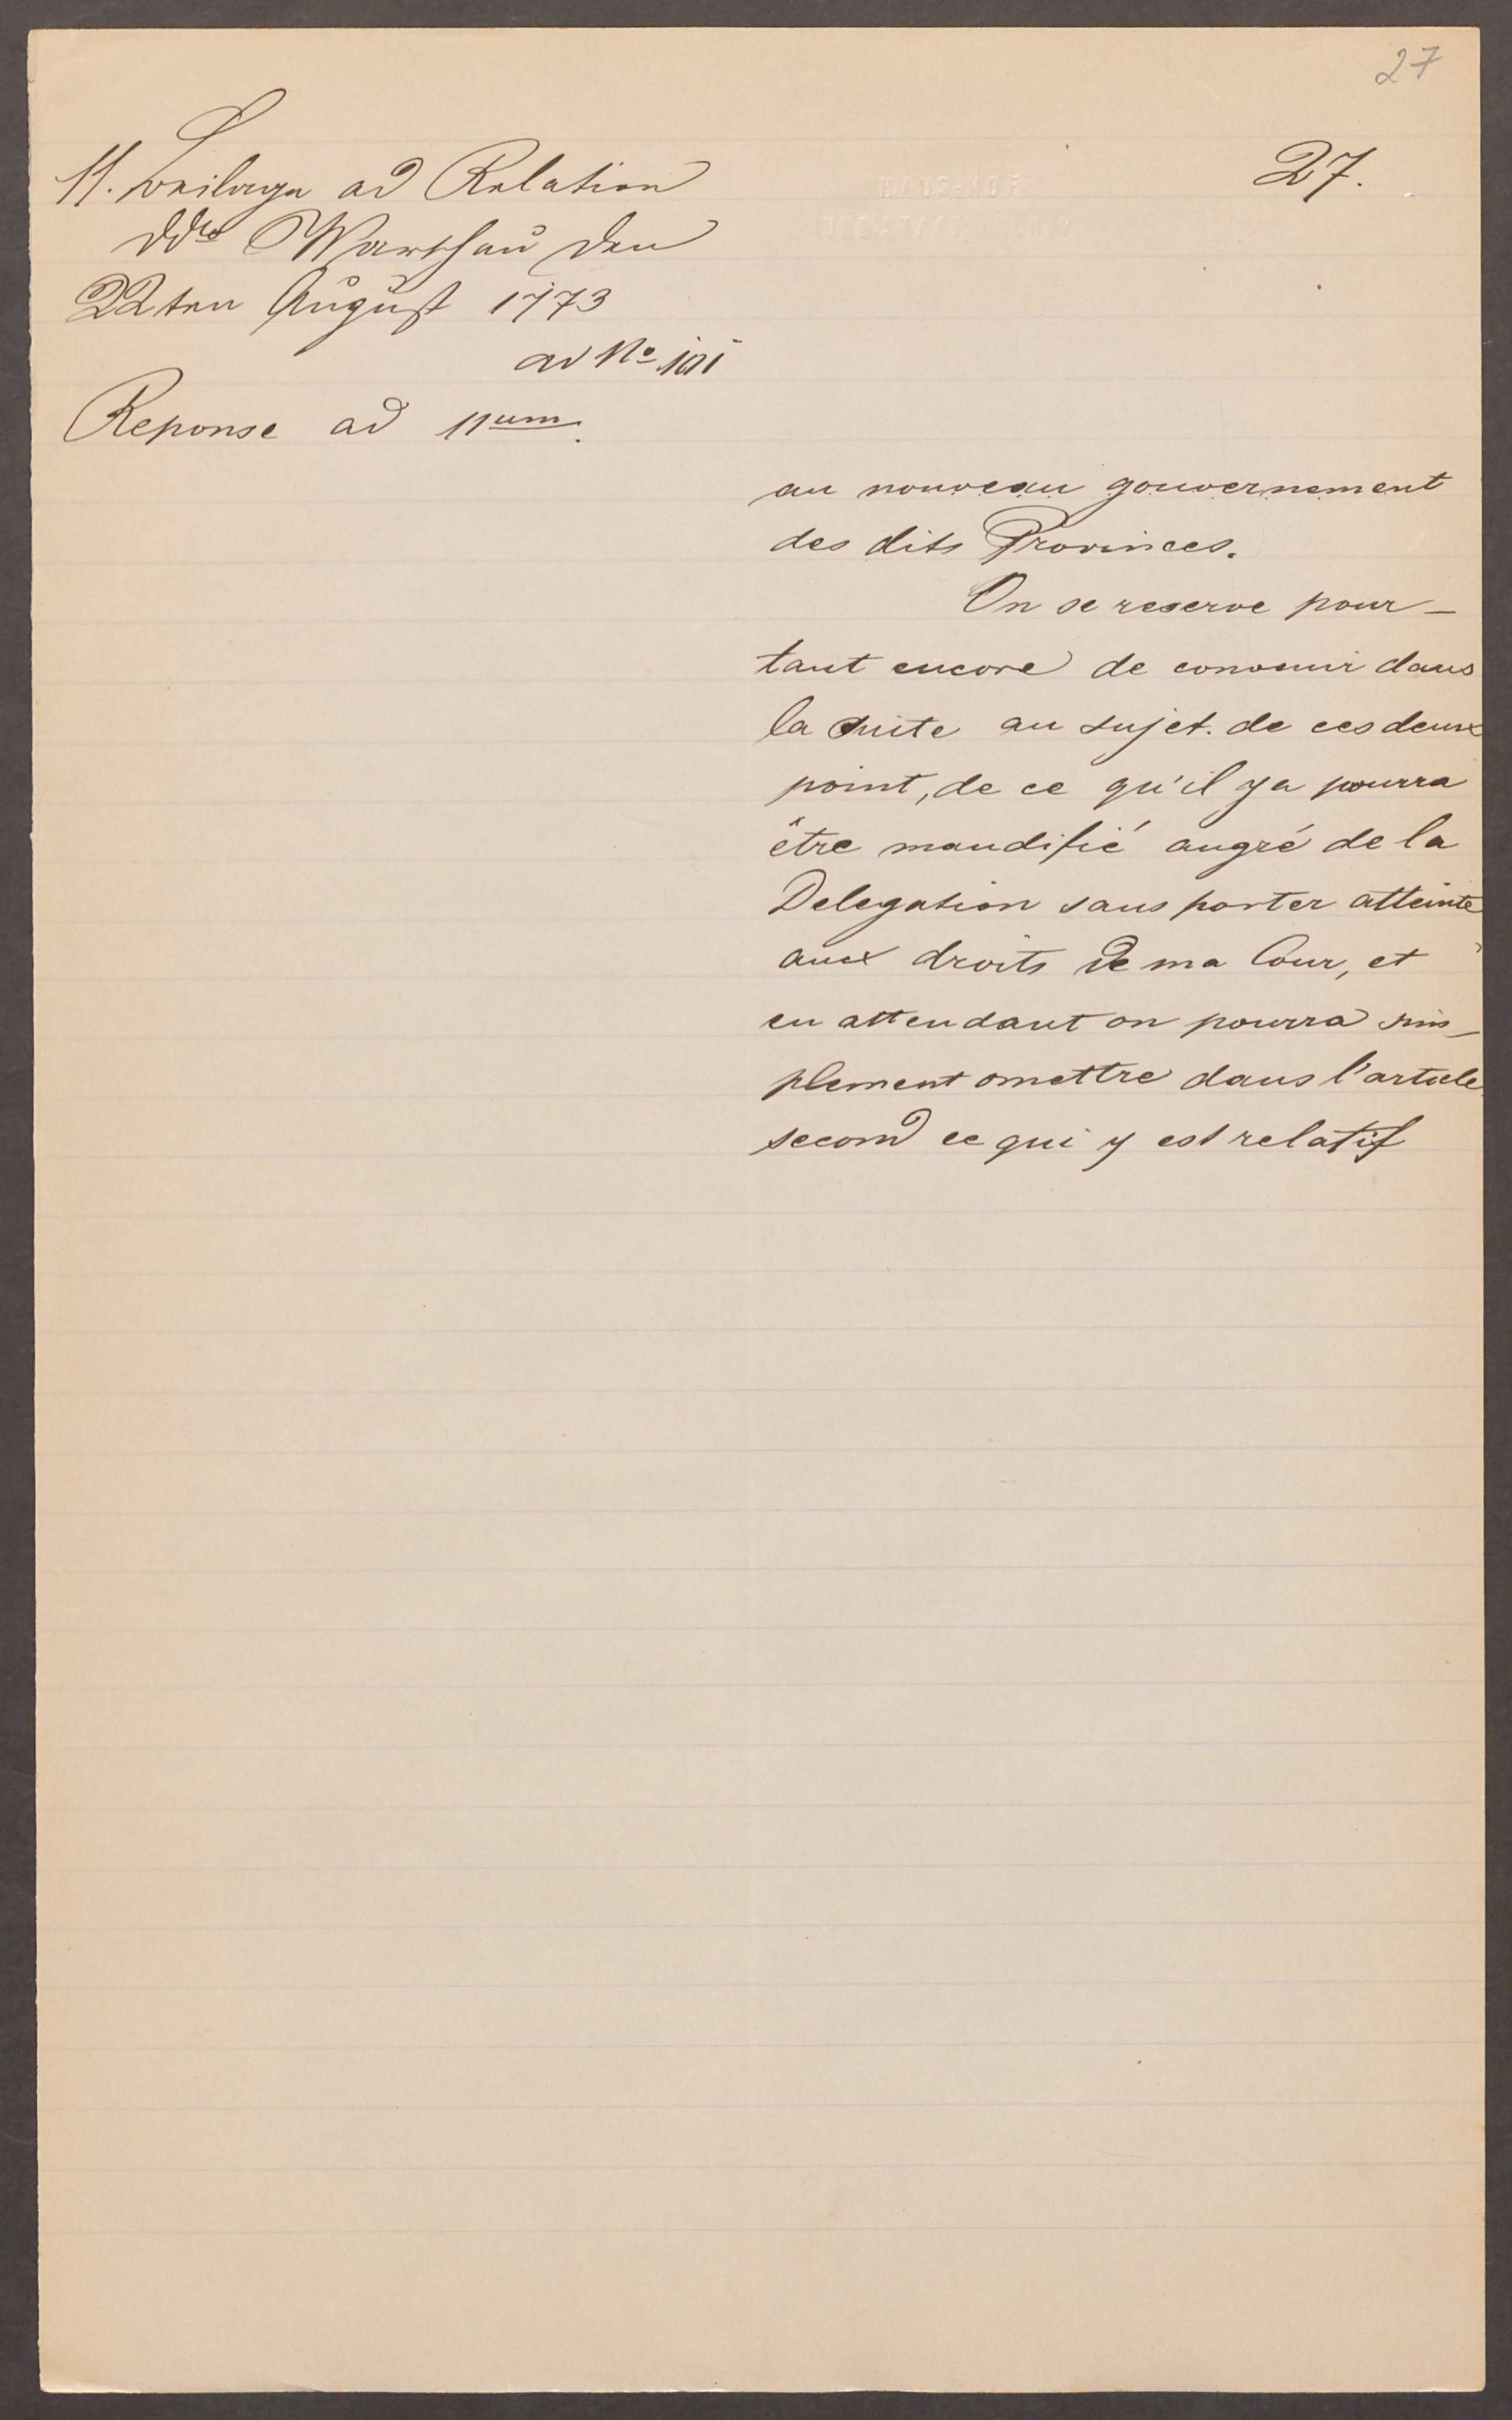 27
27.
11. Beilage ad Relation
ddto Warschau den
22ten August 1773
ad No 101
Reponse ad 11um.
au nouveau gouvernement
des dits Provinces.
On se reserve pour-
tant encore de convenir dans
la suite au sujet. de ces deux
point, de ce qu'il ya pourra
être maudifié augré de la
Delegation sans porter atteinte
aux droits de ma Cour, et
en attendant on pourra sim-
plement omettre dans l'article
second ce qui y est relatif